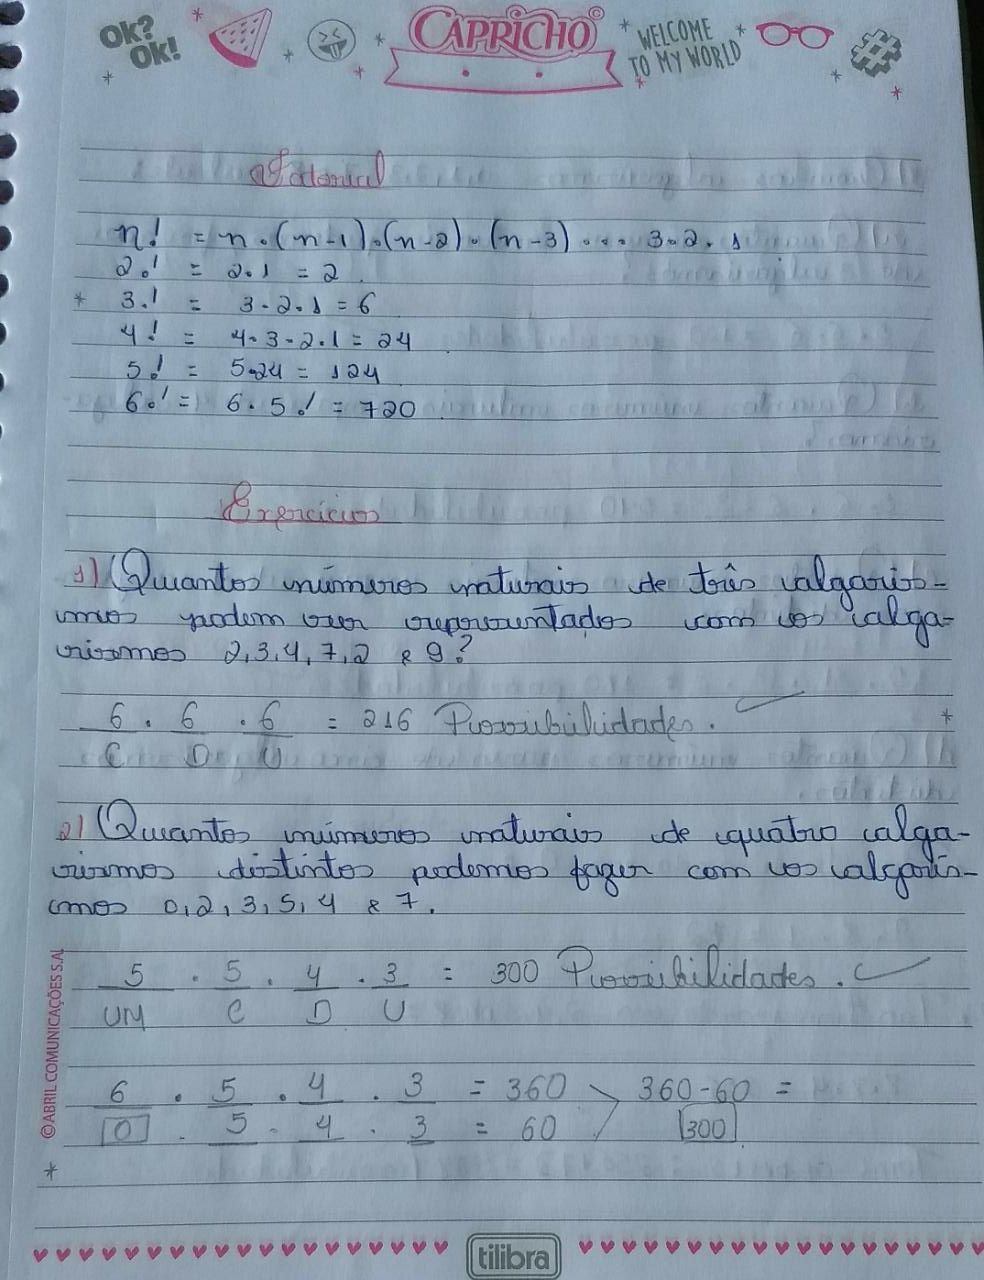 Ok?
Ok!
CAPRICHO©
WELCOME
TO MY WORLD
#
Fatorial
n! = n . (n-1) . (n-2) . (n-3) ... 3.2.1
2! = 2.1 = 2
* 3! = 3.2.1 = 6
4! = 4.3.2.1 = 24
5! = 5.24 = 124
6! = 6.5! = 720
Exercícios
1) Quantos números naturais de três algaris-
mos podem ser representados com os alga-
rismos 2,3,4,7,2 e 9?
6 . 6 . 6 = 216 Possibilidades.
C D U
2) Quantos números naturais de quatro alga-
rismos distintos podemos fazer com os algaris-
mos 0,2,3,5,4 e 7.
5 . 5 . 4 . 3 = 300 Possibilidades.
UM C D U
6 . 5 . 4 . 3 = 360 360-60 =
0 . 5 . 4 . 3 = 60 300
©ABRIL COMUNICAÇÕES S.A.
tilibra